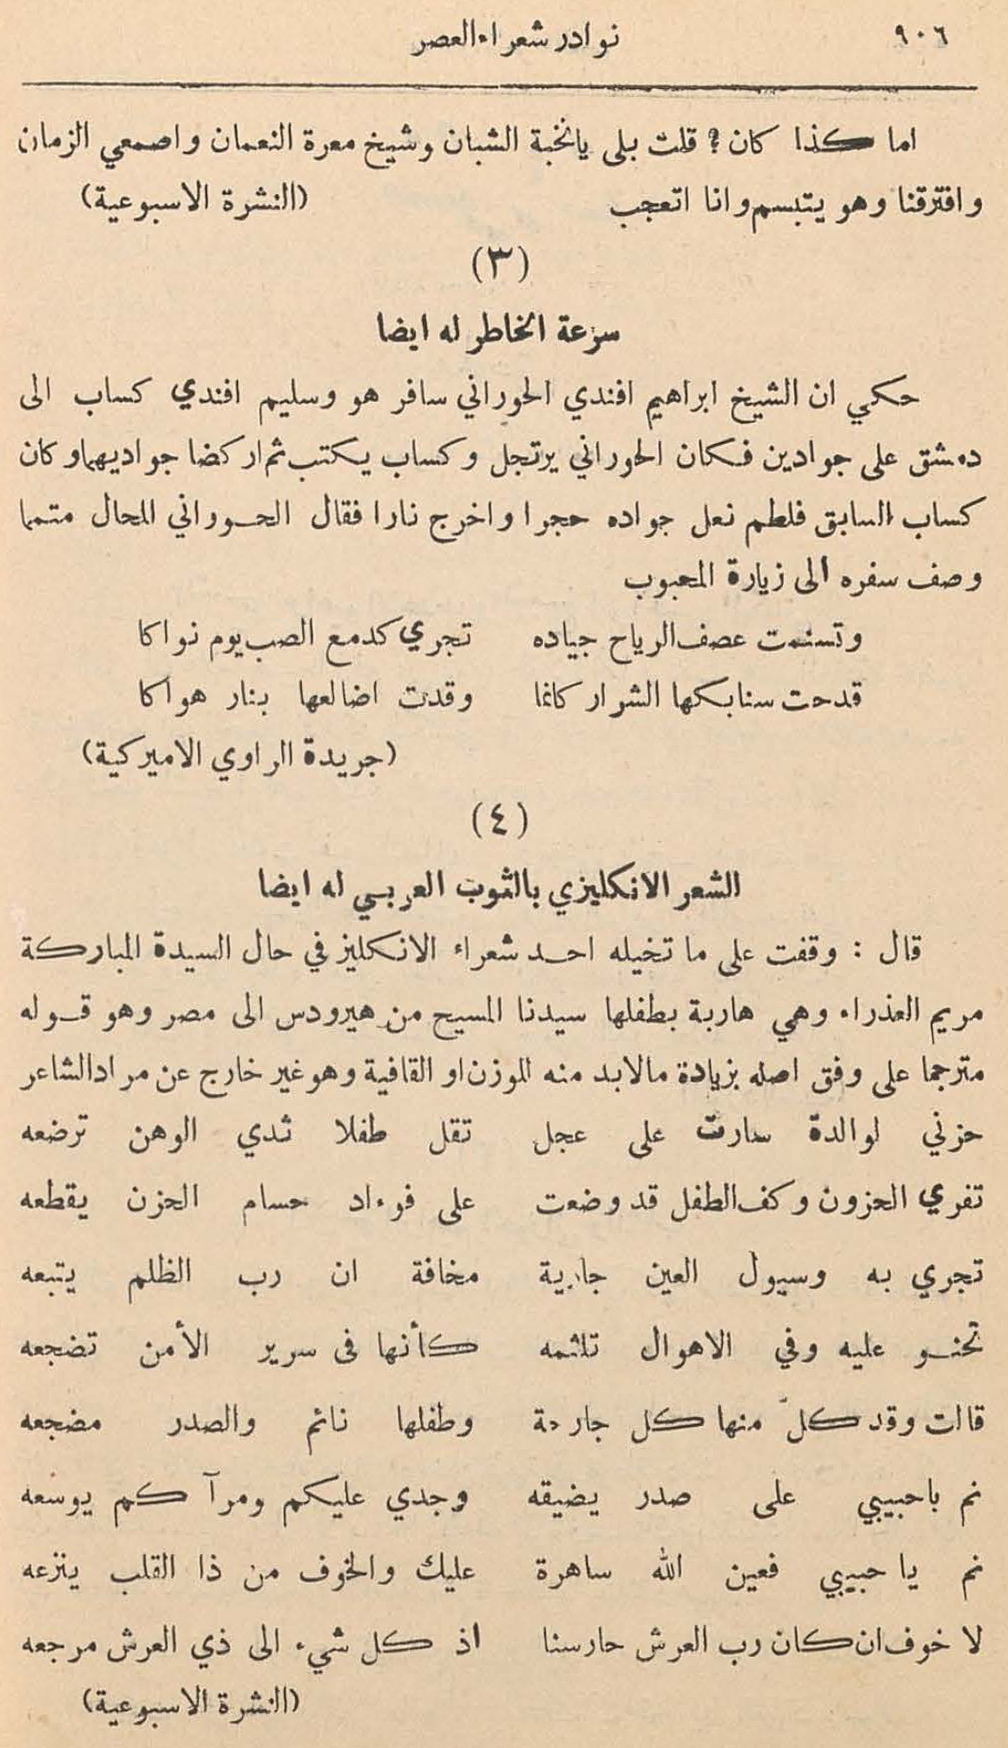 ٩٠٦ نوادر شعراء العصر
اما كذا كان ؟ قلت بلى يانخبة الشبان وشيخ معرة النعمان واصمعي الزمان
وافترقنا وهو يتبسم وانا اتعجب (النشرة الاسبوعية)
(٣)
سرعة الخاطر له ايضا
حكي ان الشيخ ابراهيم افندي الحوراني سافر هو وسليم افندي كساب الى
دمشق على جوادين فكان الحوراني يرتجل وكساب يكتب ثم اركضا جواديهما وكان
كساب السابق فلطم نعل جواده حجرا واخرج نارا فقال الحوراني للحال متمما
وصف سفره الى زيارة المحبوب
وتسنمت عصف الرياح جياده تجري كدمع الصب يوم نواكا
قدحت سنابكها الشرار كانما وقدت اضالعها بنار هواكا
(جريدة الراوي الاميركية)
(٤)
الشعر الانكليزي بالثوب العربي له ايضا
قال : وقفت على ما تخيله احد شعراء الانكليز في حال السيدة المباركة
مريم العذراء وهي هاربة بطفلها سيدنا المسيح من هيرودس الى مصر وهو قوله
مترجما على وفق اصله بزيادة مالابد منه للوزن او القافية وهو غير خارج عن مراد الشاعر
حزني لوالدة سارت على عجل تقل طفلا ثدي الوهن ترضعه
تفري الحزون وكف الطفل قد وضعت على فوءاد حسام الحزن يقطعه
تجري به وسيول العين جارية مخافة ان رب الظلم يتبعه
تحنو عليه وفي الاهوال تلثمه كأنها في سرير الأمن تضجعه
قالت وقد كلّ منها كل جارحة وطفلها نائم والصدر مضجعه
نم ياحبيبي على صدر يضيقه وجدي عليكم ومرآكم يوسعه
نم يا حبيبي فعين الله ساهرة عليك والخوف من ذا القلب ينزعه
لا خوف ان كان رب العرش حارسنا اذ كل شيء الى ذي العرش مرجعه
(النشرة الاسبوعية)